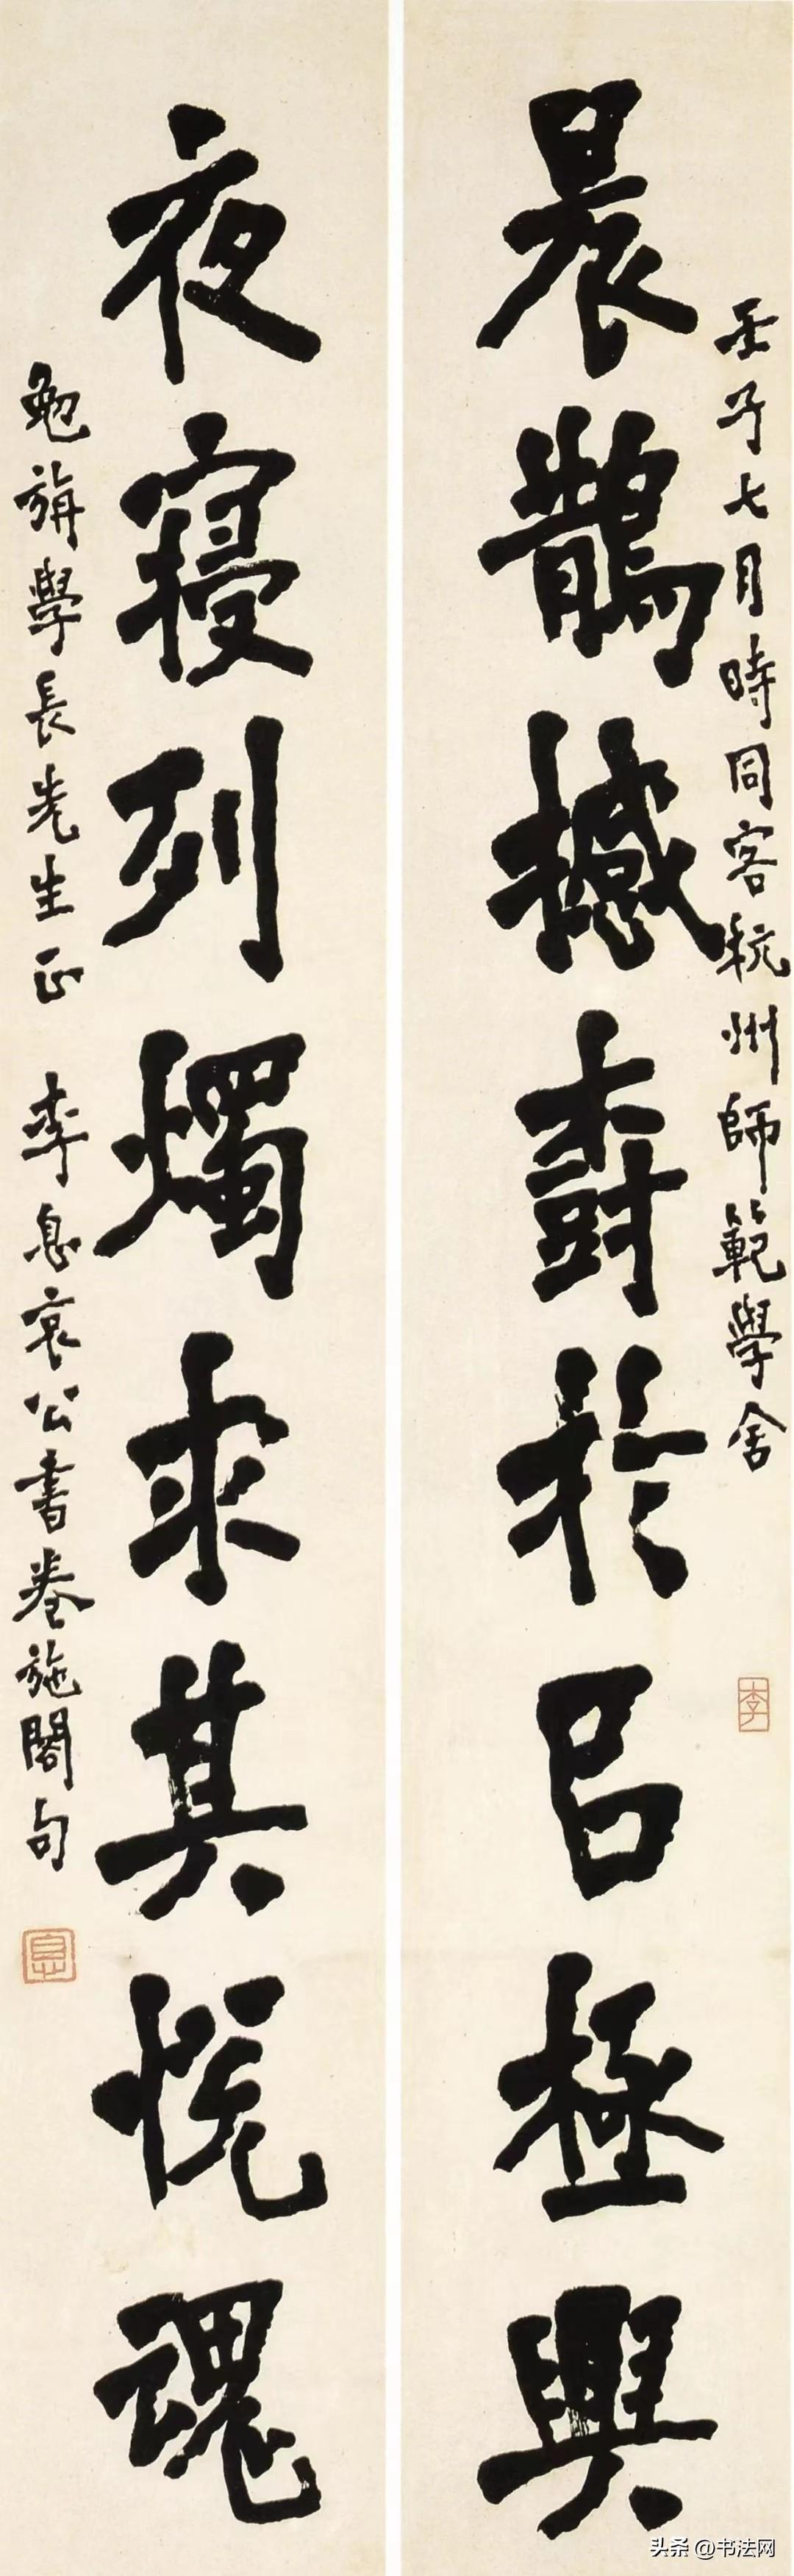 壬子七月時同客杭州師範學舍
晨鵲撼𡔷於㠯極興
李
夜寝列燭求其悦魂
勉旃學長先生正 李息哀公書卷施閣句
息
头条 @书法网